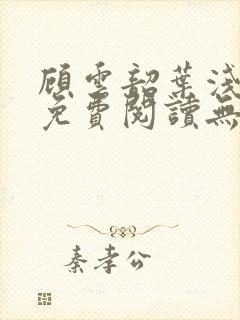 顧雲韶葉淺
免費閱讀無
秦孝公